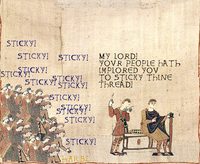 STICKY!
STICKY!
STICKY!
STICKY!
STICKY!
STICKY!
STICKY!
STICKY!
STICKY!
STICKY!
STICKY!
STICKY!
MY LORD!
YOUR PEOPLE HATH
IMPLORED YOU
TO STICKY THINE
THREAD!